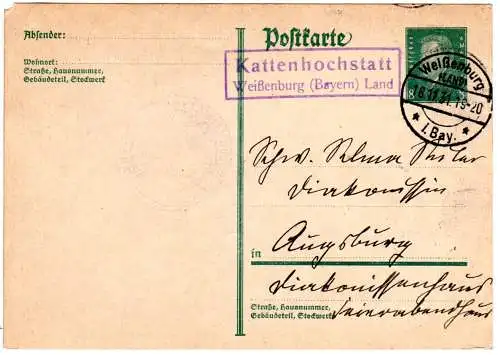 Absender:
Wohnort:
Straße, Hausnummer,
Gebäudeteil, Stockwerk
Postkarte
Kattenhochstatt
Weißenburg (Bayern) Land
Weißenburg
(LAND)
8.11.31.19-20
* I. Bay. *
8
Schw. Selma
Diakonissin
in Augsburg
Diakonissenhaus
Straße, Hausnummer,
Gebäudeteil, Stockwerk
Feierabendhaus